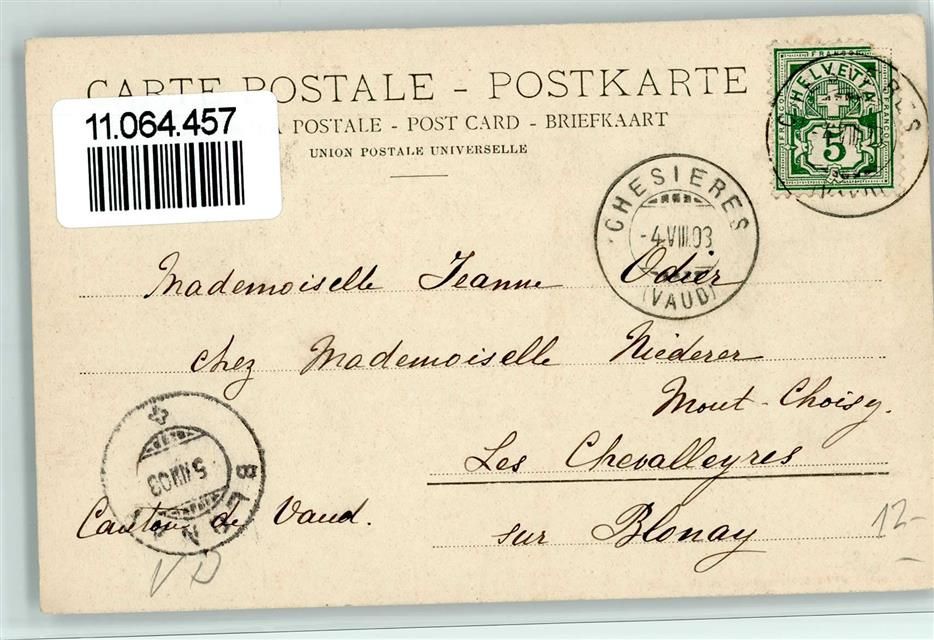 CARTE POSTALE - POSTKARTE
POSTALE - POST CARD - BRIEFKAART
UNION POSTALE UNIVERSELLE
11.064.457
FRANCO
HELVETIA
5
CHESIERES
-4.VIII.03
(VAUD)
Mademoiselle Jeanne Odier
chez Mademoiselle Niederer
Mont-Choisy.
Les Chevalleyres
sur Blonay
Canton de Vaud.
BLONAY
5.VIII.03
VD
12-